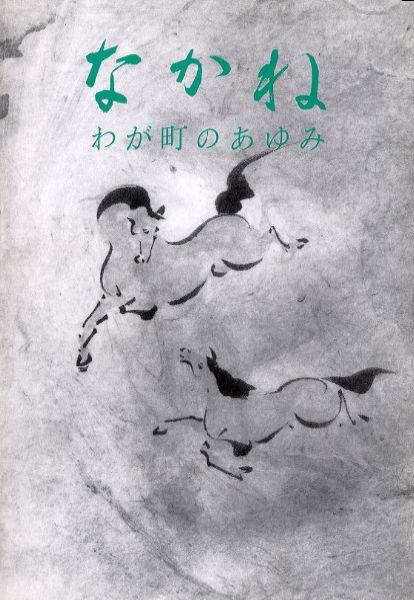 なかね
わが町のあゆみ